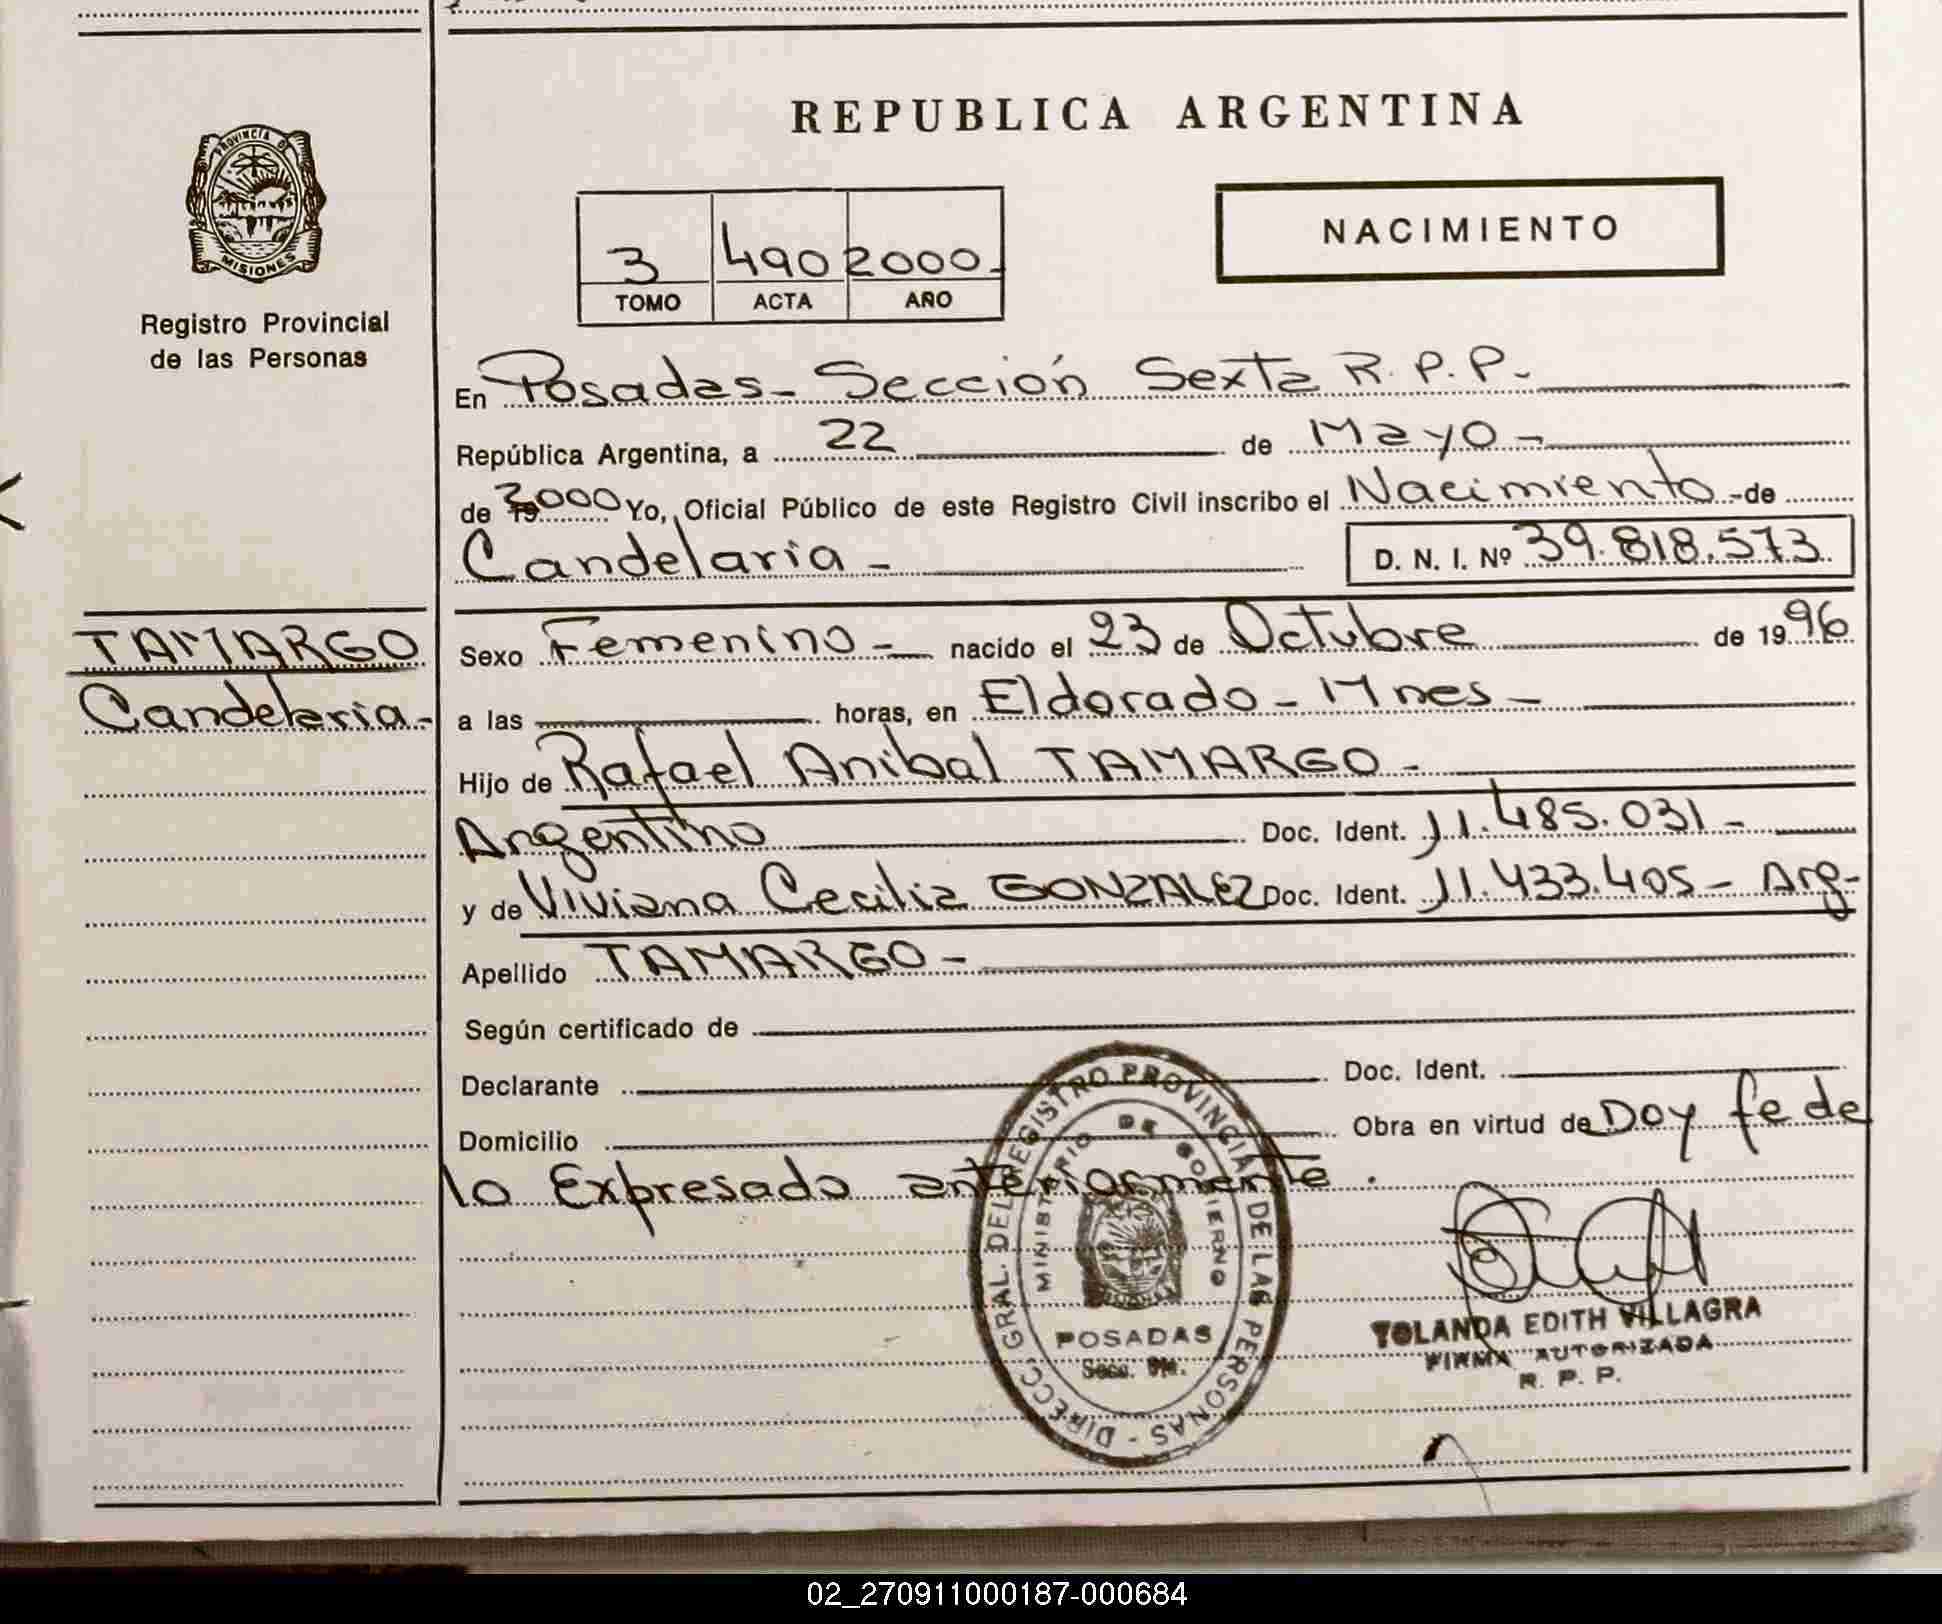 REPUBLICA ARGENTINA
PROVINCIA DE
MISIONES
Registro Provincial
de las Personas
3 490 2000-
TOMO ACTA AÑO
NACIMIENTO
En Posadas- Sección Sexta R.P.P.-
República Argentina, a 22 de Mayo-
de 2000 Yo, Oficial Público de este Registro Civil inscribo el Nacimiento -de
Candelaria - D. N. I. Nº 39.818.573
TAMARGO
Candelaria-
Sexo Femenino - nacido el 23 de Octubre de 1996
a las horas, en Eldorado - Mnes -
Hijo de Rafael Anibal TAMARGO -
Argentino Doc. Ident. 11.485.031 -
y de Viviana Cecilia GONZALEZ Doc. Ident. 11.433.405 - Arg-
Apellido TAMARGO -
Según certificado de
Declarante Doc. Ident.
Domicilio Obra en virtud de Doy fe de
lo Expresado anteriormente.
DIRECC. GRAL. DEL REGISTRO PROVINCIAL DE LAS PERSONAS -
MINISTERIO DE GOBIERNO
POSADAS
Secc.
YOLANDA EDITH VILLAGRA
FIRMA AUTORIZADA
R. P. P.
02_270911000187-000684